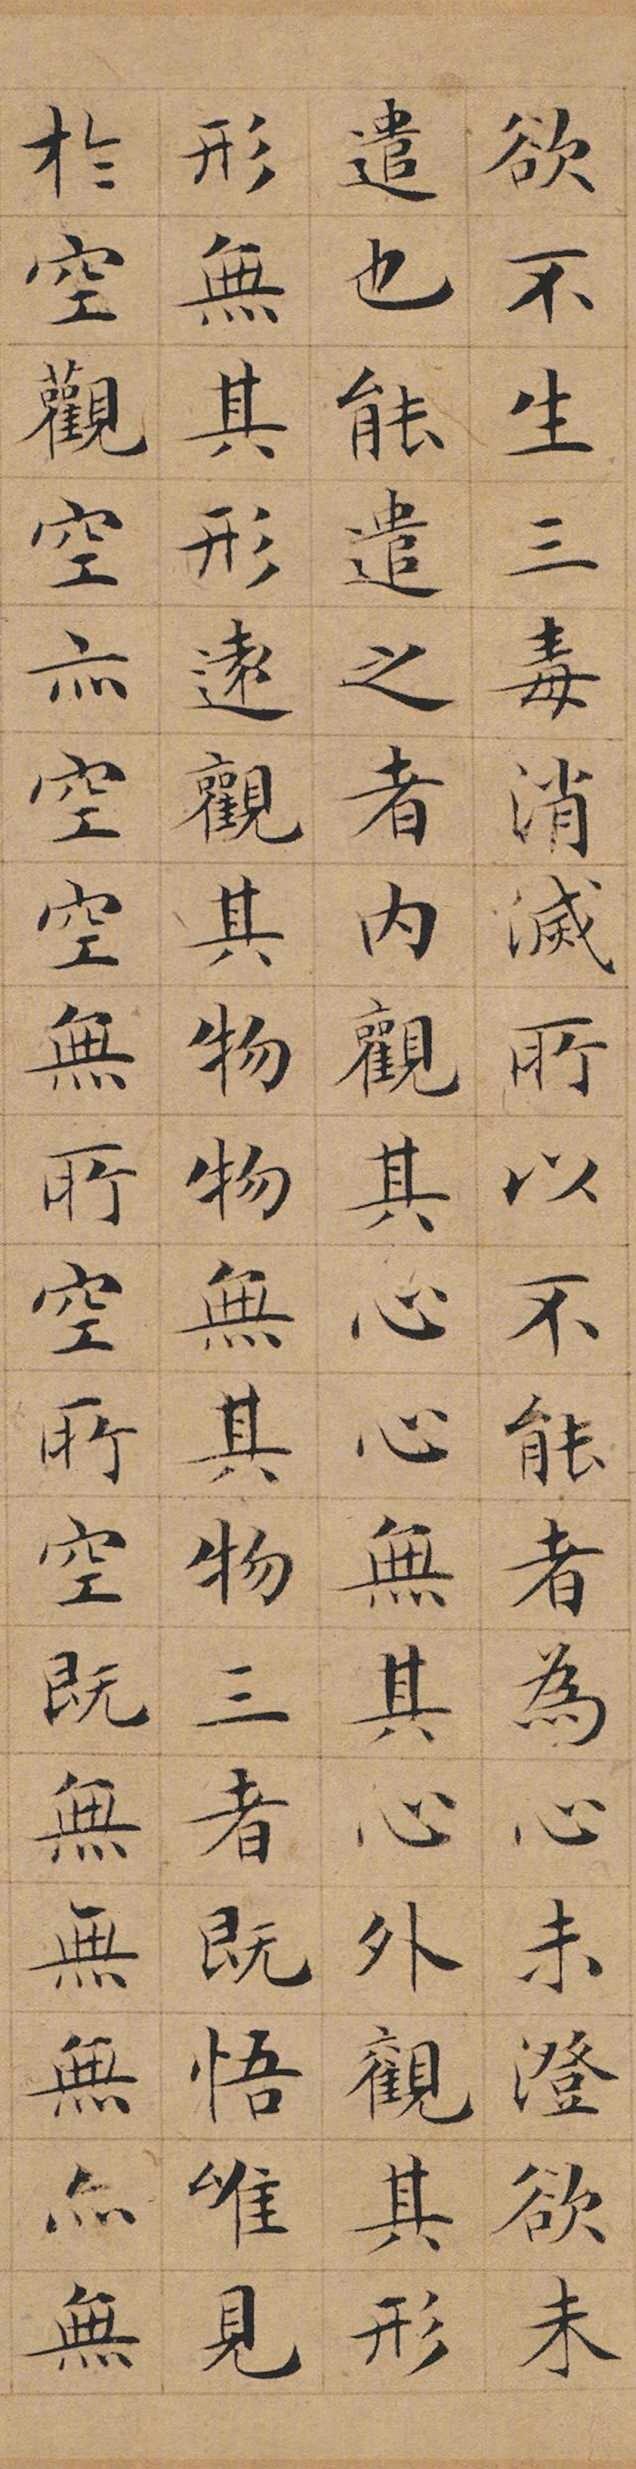 欲不生三毒消滅所以不能者為心未澄欲未
遣也能遣之者内觀其心心無其心外觀其形
形無其形遠觀其物物無其物三者既悟唯見
於空觀空亦空空無所空所空既無無無亦無